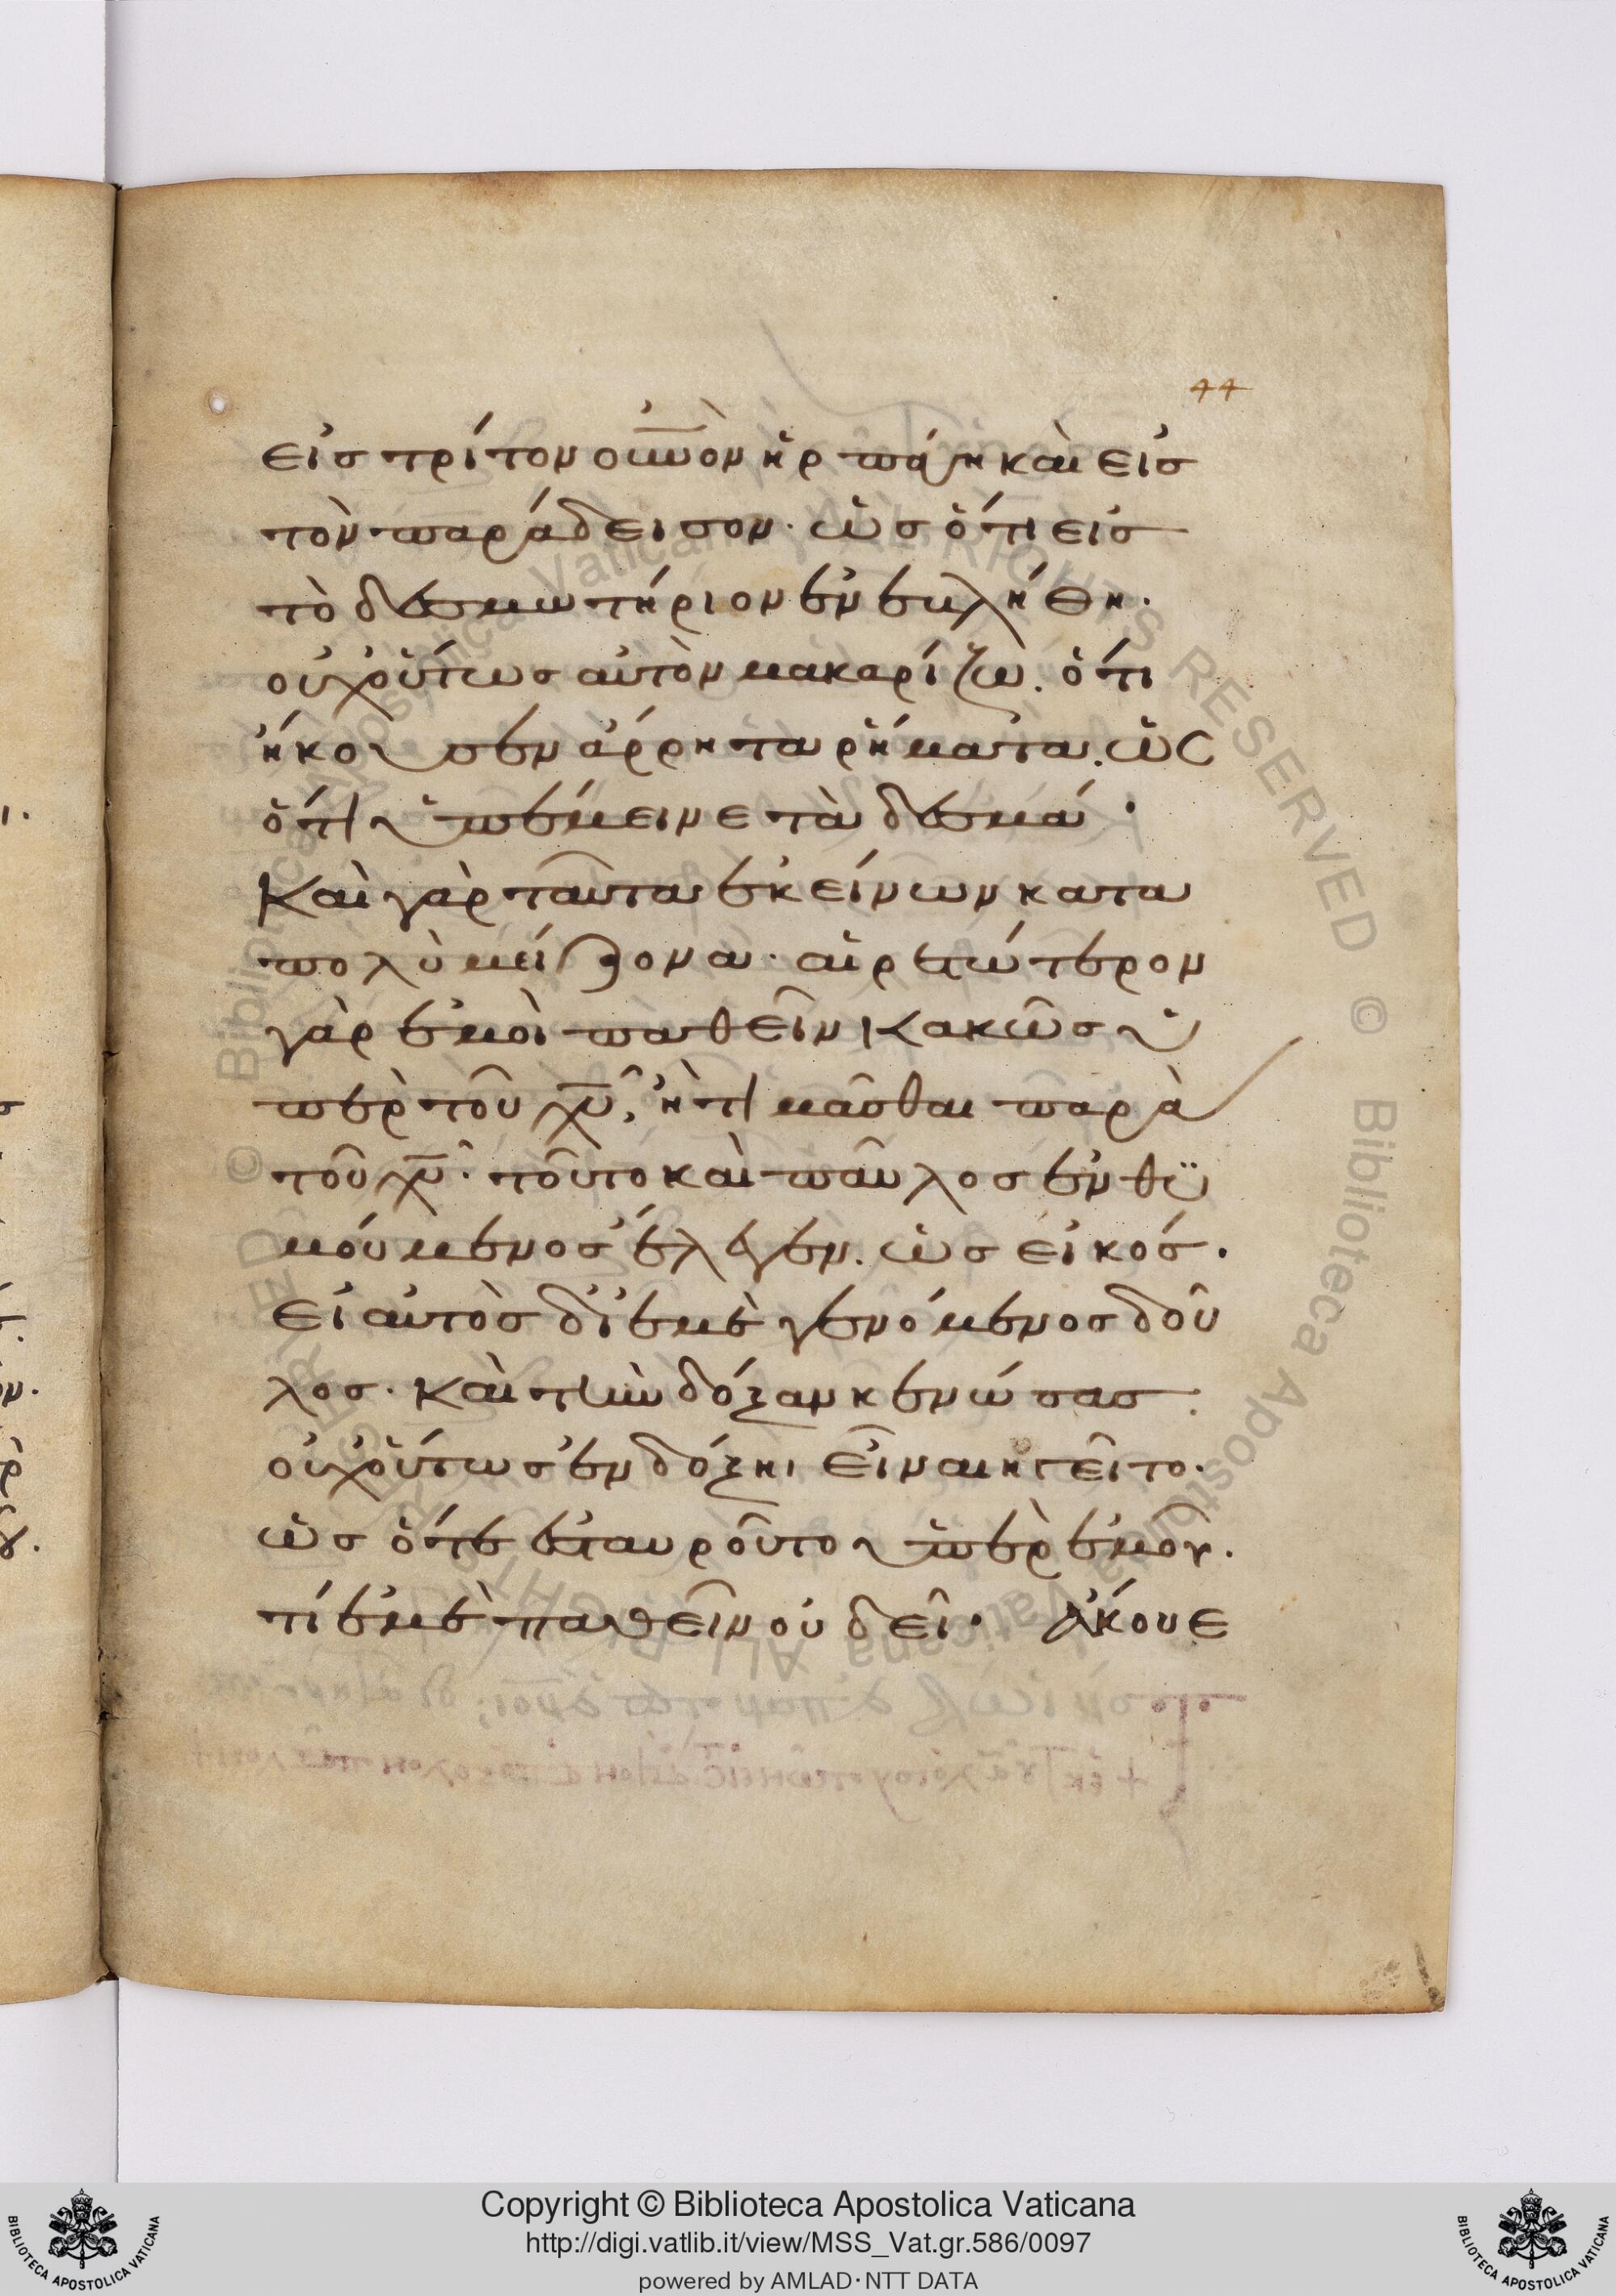 44
εἰς τρίτον οὐνὸν ἡρπάγη καὶ εἰς
τὸν παράδεισον· ὡς ὅτι εἰς
τὸ δεσμωτήριον ἐνεβλήθη·
οὐχ οὕτως αὐτὸν μακαρίζω. ὅτι
ἤκουσεν ἄρρητα ῥήματα. ὡς
ὅτι ὑπέμεινε τὰ δεσμά·
Καὶ γὰρ ταῦτα ἐκείνων κατα
πολὺ μείζονα· αἱρετώτερον
γὰρ ἐμοὶ παθεῖν κακῶς ὑ
πὲρ τοῦ χυ, ἢ τιμᾶσθαι παρὰ
τοῦ χυ· τοῦτο καὶ παῦλος ἐνθυ
μούμενος ἔλεγεν. ὡς εἰκός·
εἰ αὐτὸς δι' ἐμὲ γενόμενος δοῦ
λος· καὶ τὴν δόξαν κενώσας·
οὐχ οὕτως ἐν δόξῃ εἶναι ἡγεῖτο·
ὡς ὅτε ἐσταυροῦτο ὑπὲρ ἐμοῦ·
τί ἐμὲ παθεῖν οὐ δεῖ· Ἄκουε
Copyright © Biblioteca Apostolica Vaticana
http://digi.vatlib.it/view/MSS_Vat.gr.586/0097
powered by AMLAD·NTT DATA
BIBLIOTECA APOSTOLICA VATICANA
BIBLIOTECA APOSTOLICA VATICANA